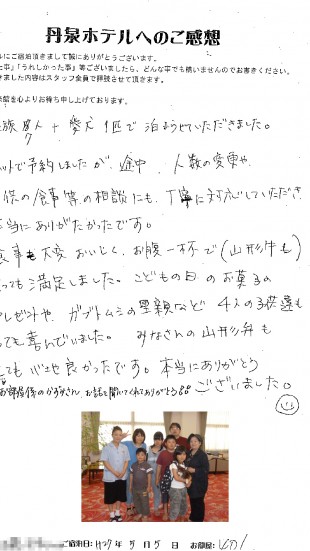 丹泉ホテルへのご感想
ルにご宿泊頂きまして誠にありがとうございます。
た事』『うれしかった事』等ございましたら、どんな事でも構いませんのでお書きください。
きました内容はスタッフ全員で拝読させて頂きます。
来館を心よりお待ち申し上げております。
族 7人 + 愛犬 1匹で 泊まらせていただきました。
ットで予約しましたが、途中、人数の変更や、
供の食事等の相談にも、丁寧に対応していただき、
当にありがたかったです。
食事も大変おいしく、お腹一杯で(山形牛も)
っても満足しました。こどもの日のお菓子の
プレゼントや、カブトムシの里親など 4人の子供達も
ても喜んでいました。 みなさんの山形弁も
ても心地良かったです。本当にありがとう
お部屋係のかずみさん、お話を聞いてくれてありがとう ございました。
ご宿泊日:H27年 5月5日 お部屋: